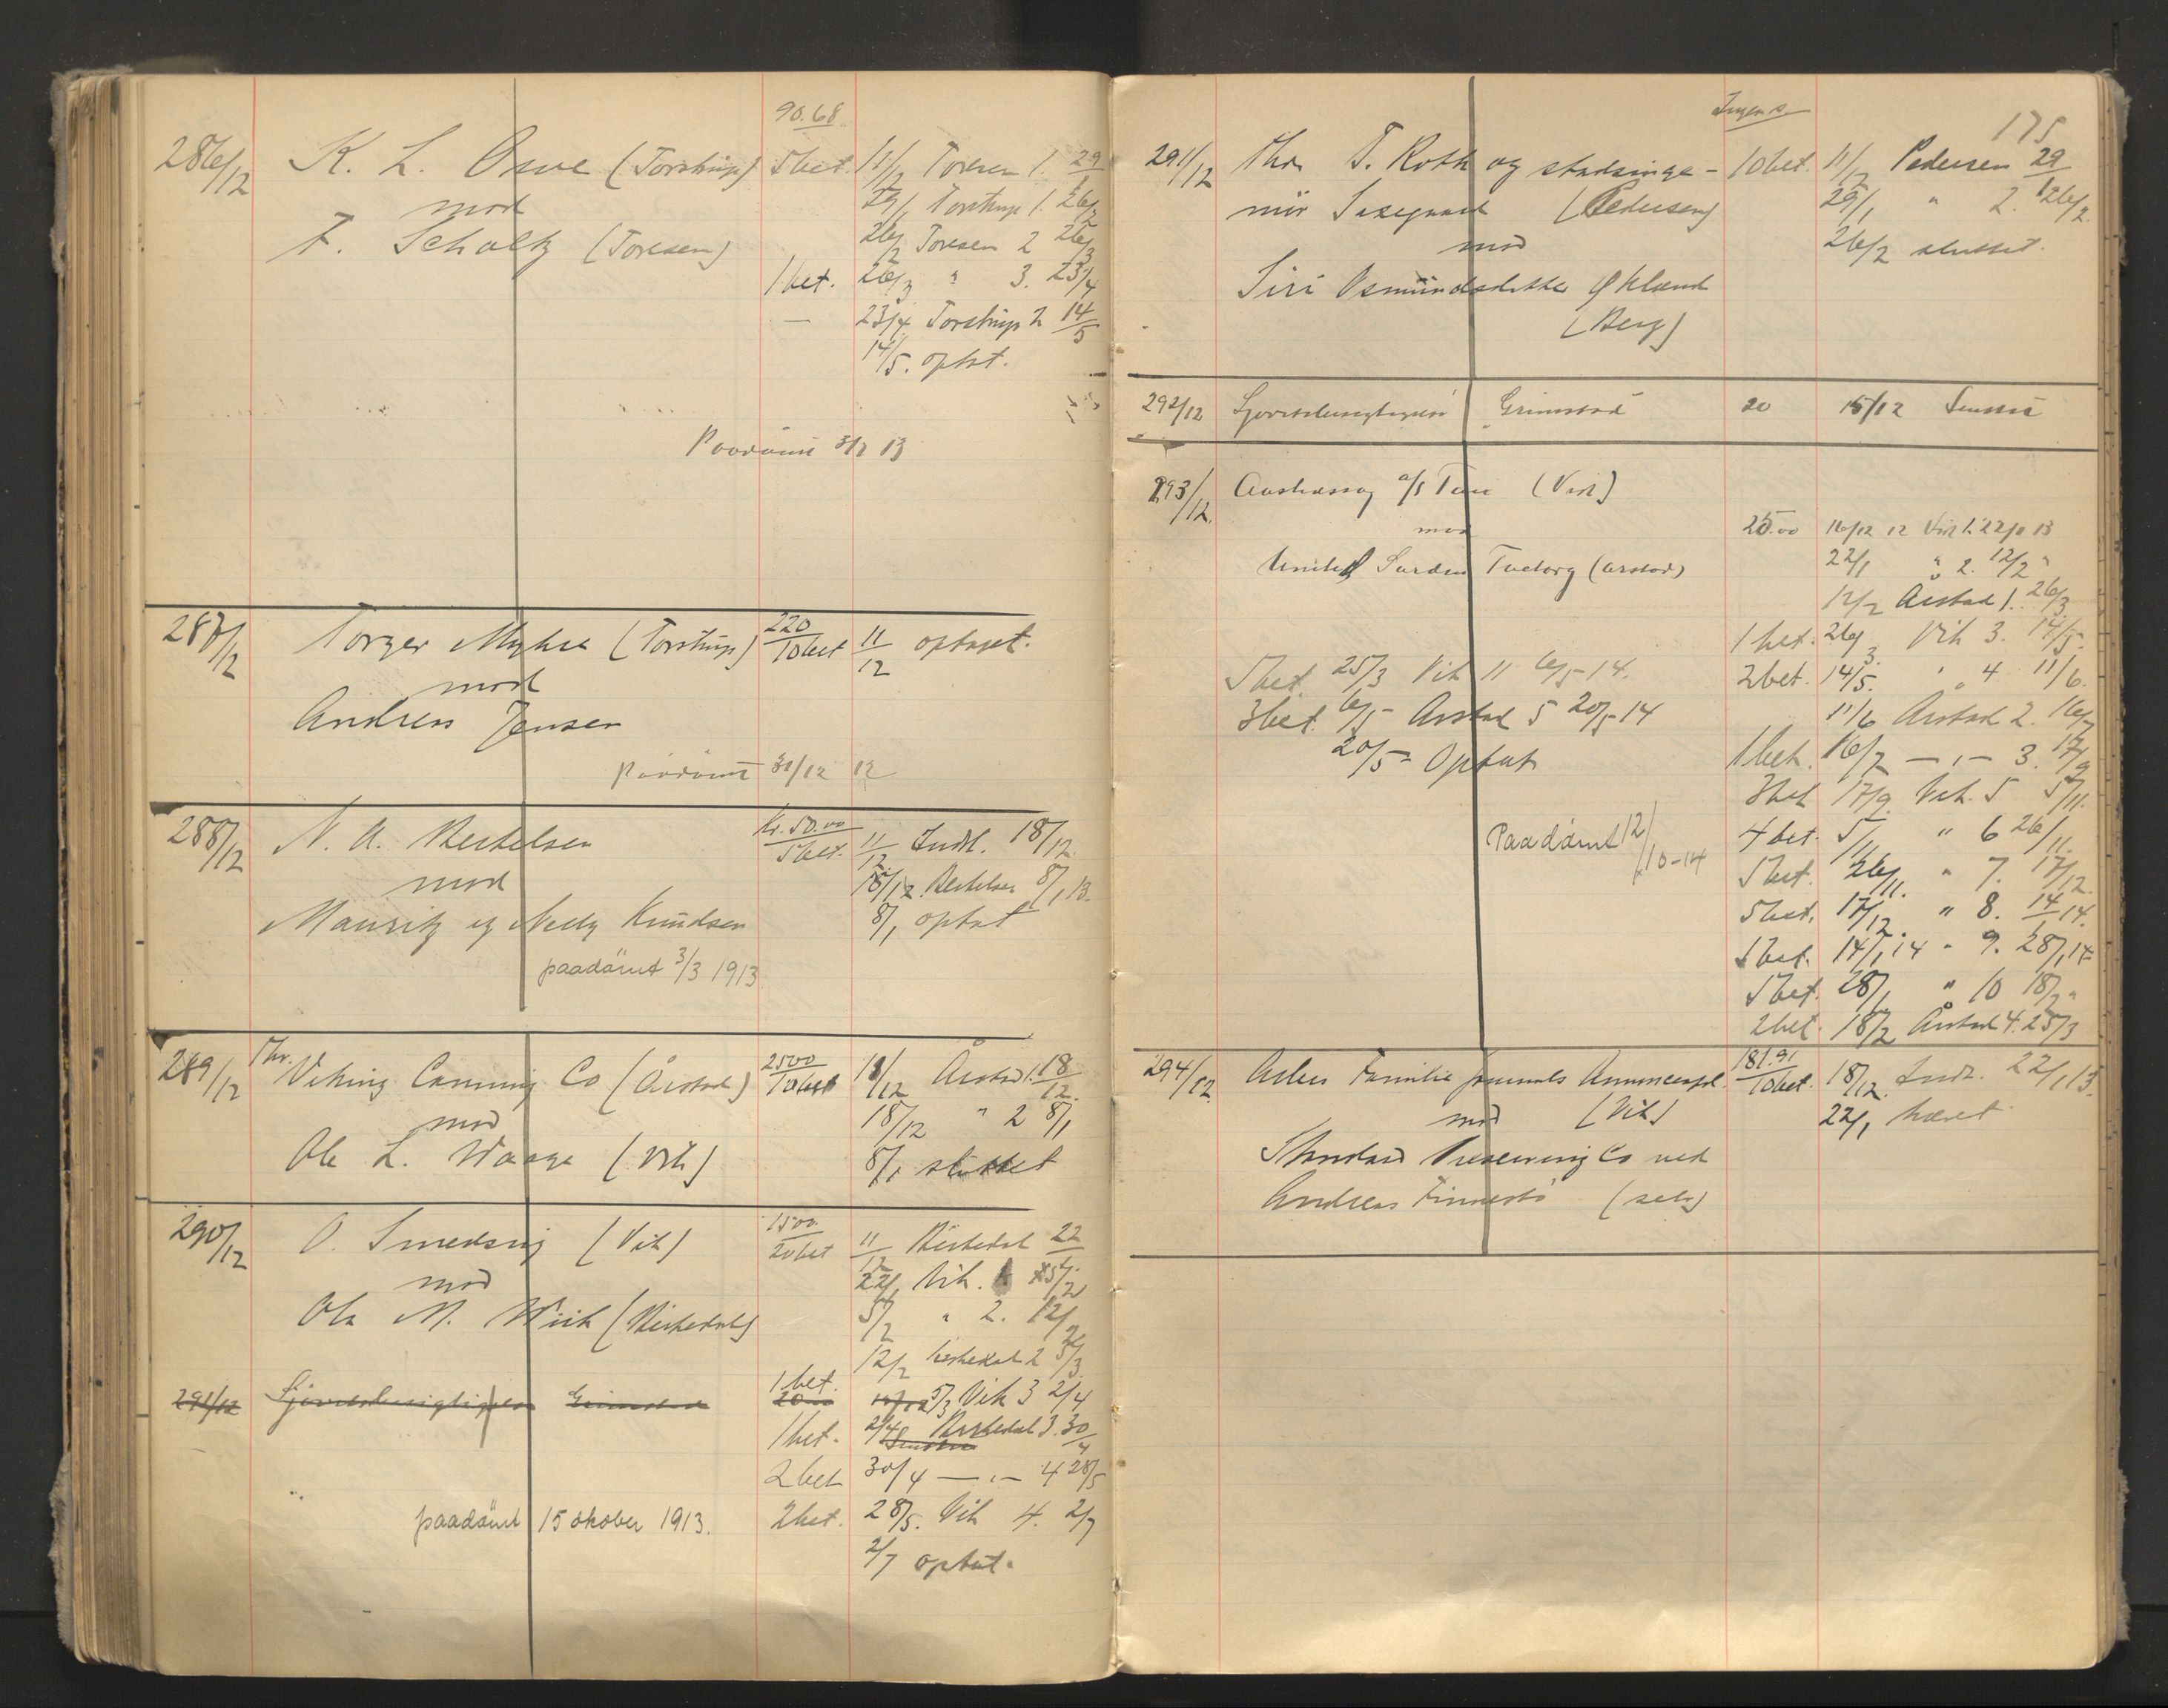 90.68
286/12 K. L. Osue (Torstrup) 5 bet. 11/12 Toresen 1. 29/1
mod 29/1 Torstrup 1. 26/2
F. Scholtz (Toresen) 26/2 Toresen 2 26/3
1 bet. 26/3 " 3. 23/4
— 23/4 Torstrup 2 14/5
14/5. optat.
Paadömt 31/3 13
287/12 Torger Myhre (Torstrup) 220 10 bet 11/12 optaget.
mod
Andreas Jensen
Paadömt 31/12 12
288/12 N. A. Berkelsen Kr. 50.00 5 bet. 11/12 Indk. 18/12
mod 18/12. Berkelsen 8/1 13.
Mauritz og Nelly Knudsen 8/1 optat
paadömt 3/3 1913
289/12 Thv. Viking Canning Co (Årstad) 2500 10 bet 11/12 Årstad 1. 18/12.
mod 18/12 " 2 8/1
Ole L. Waage (Vik) 8/1 sluttet
290/12 O. Smedsvig (Vik) 1500. 20 bet 11/12 Birkedal 22/1
mod 22/1 Vik. 5/2
Ole M. Wiik (Birkedal) 5/2 " 2. 12/2
12/2 Birkedal 2 5/3
1 bet.
291/12 Sjøretsbesigtigelse Grimstad 20 5/3 Vik 3 2/4
1 bet. 2/4 Birkedal 3. 30/4
2 bet 30/4 — " — 4 28/5
paadömt 15 oktober 1913. 2 bet. 28/5. Vik 4. 2/7
2/7 optat.
Ingen s.
175
291/12 thv T. Roth og stadsinge- 10 bet. 11/12 Pedersen 29/1
niör (Pedersen) 29/1 " 2. 26/2
mod 26/2 sluttet.
Siri Osmundsdatter Økland
(Berg)
292/12 Sjøretsbesigtigelse Grimstad 20 15/12
293/12. Avstaassag a/s (Vik)
mod 25.00 16/12 12 Vik 1. 22/1 13
United Sardin Factory (Årstad) 22/1 " 2. 12/2 "
12/2 Årstad 1. 26/3
1 bet. 26/3. Vik 3. 14/5.
5 bet. 25/3 Vik 11 6/5-14. 2 bet. 14/5. " 4 11/6.
3 bet. 6/5 - Årstad 5 20/5-14 11/6 Årstad 2. 16/7
20/5 - Optat 1 bet. 16/7 — " — 3. 17/9
3 bet 17/9. Vik. 5 5/11.
Paadömt 12/10-14 4 bet. 5/11 " 6 26/11.
5 bet. 26/11. " 7. 17/12.
5 bet. 17/12. " 8. 14/1 14.
5 bet. 14/1 14 " 9. 28/1 14
5 bet. 28/1 " 10 18/2 "
2 bet. 18/2 Årstad 4. 25/3
294/12 Allers Familie Journals Annonceexpd. 181.91 10 bet. 18/12. Indk. 22/1 13.
mod (Vik) 22/1 hævet
Standard Preserving Co ved
Andreas Finnestö (selv)